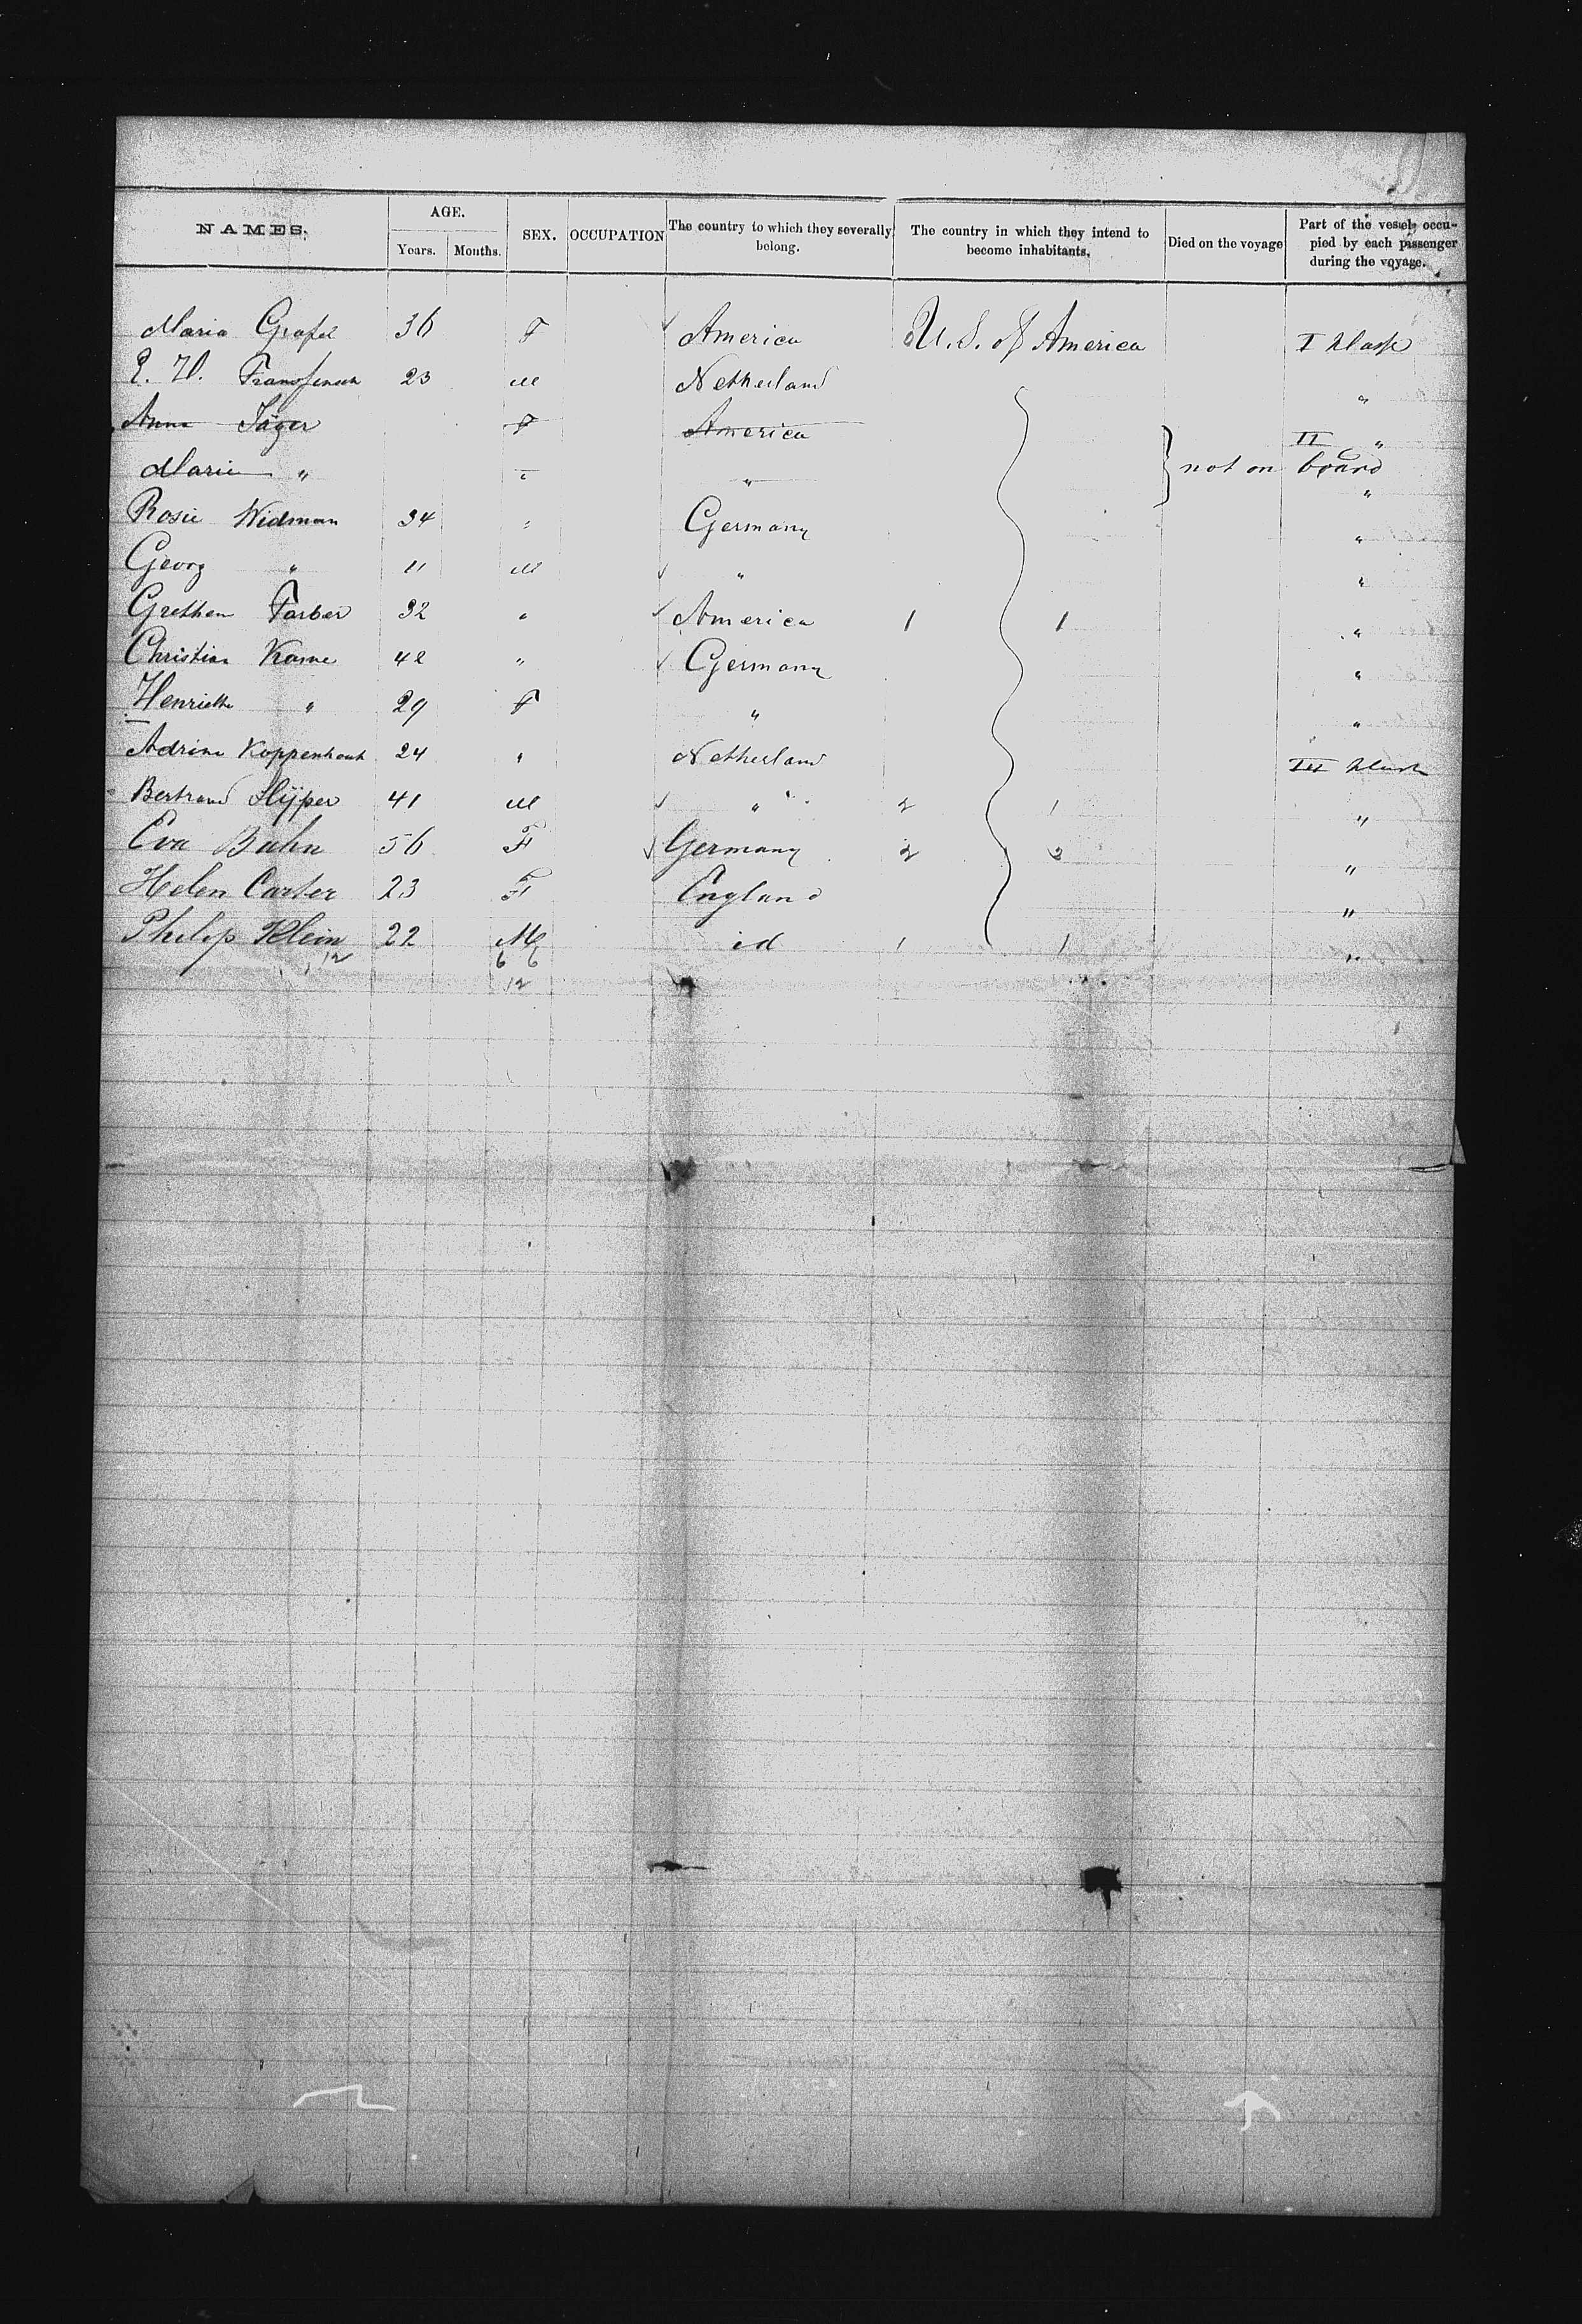 NAMES. AGE. SEX. OCCUPATION The country to which they severally belong. The country in which they intend to become inhabitants. Died on the voyage Part of the vessel occupied by each passenger during the voyage.
Years. Months.
Maria Grafel 36 F America U.S. of America I Klasse
23 M Netherland "
Anna Jäger F America II "
Marie " " " not on board "
Rosie Widman 34 " Germany "
Georg " 11 M " "
Grethen Farber 32 " America 1 1 "
Christian Krame 42 " Germany "
Henriette " 29 F " "
Adrine Koppenhout 24 " Netherland III Klasse
Bertrand Slijper 41 M " 2 1 "
Eva Bahn 56 F Germany 2 2 "
Helen Carter 23 F England "
Philip Klein 22 M id 1 1 "
12 6 6
12